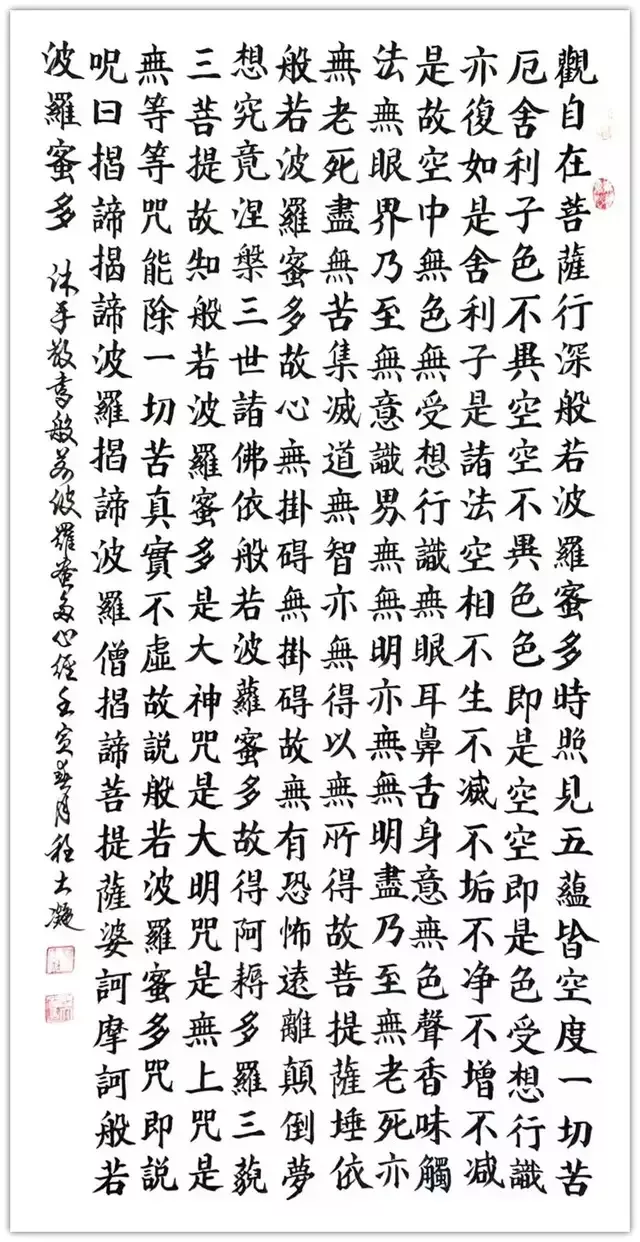 觀自在菩薩行深般若波羅蜜多時照見五蘊皆空度一切苦
厄舍利子色不異空空不異色色即是空空即是色受想行識
亦復如是舍利子是諸法空相不生不滅不垢不净不增不减
是故空中無色無受想行識無眼耳鼻舌身意無色聲香味觸
法無眼界乃至無意識男無無明亦無無明盡乃至無老死亦
無老死盡無苦集滅道無智亦無得以無所得故菩提薩埵依
般若波羅蜜多故心無掛碍無掛碍故無有恐怖遠離顛倒夢
想究竟涅槃三世諸佛依般若波蘿蜜多故得阿耨多羅三藐
三菩提故知般若波羅蜜多是大神咒是大明咒是無上咒是
無等等咒能除一切苦真實不虛故説般若波羅蜜多咒即説
呪曰揭諦揭諦波羅揭諦波羅僧揭諦菩提薩婆訶摩訶般若
波羅蜜多
沐手敬書般若波羅蜜多心經壬寅春月程大凝